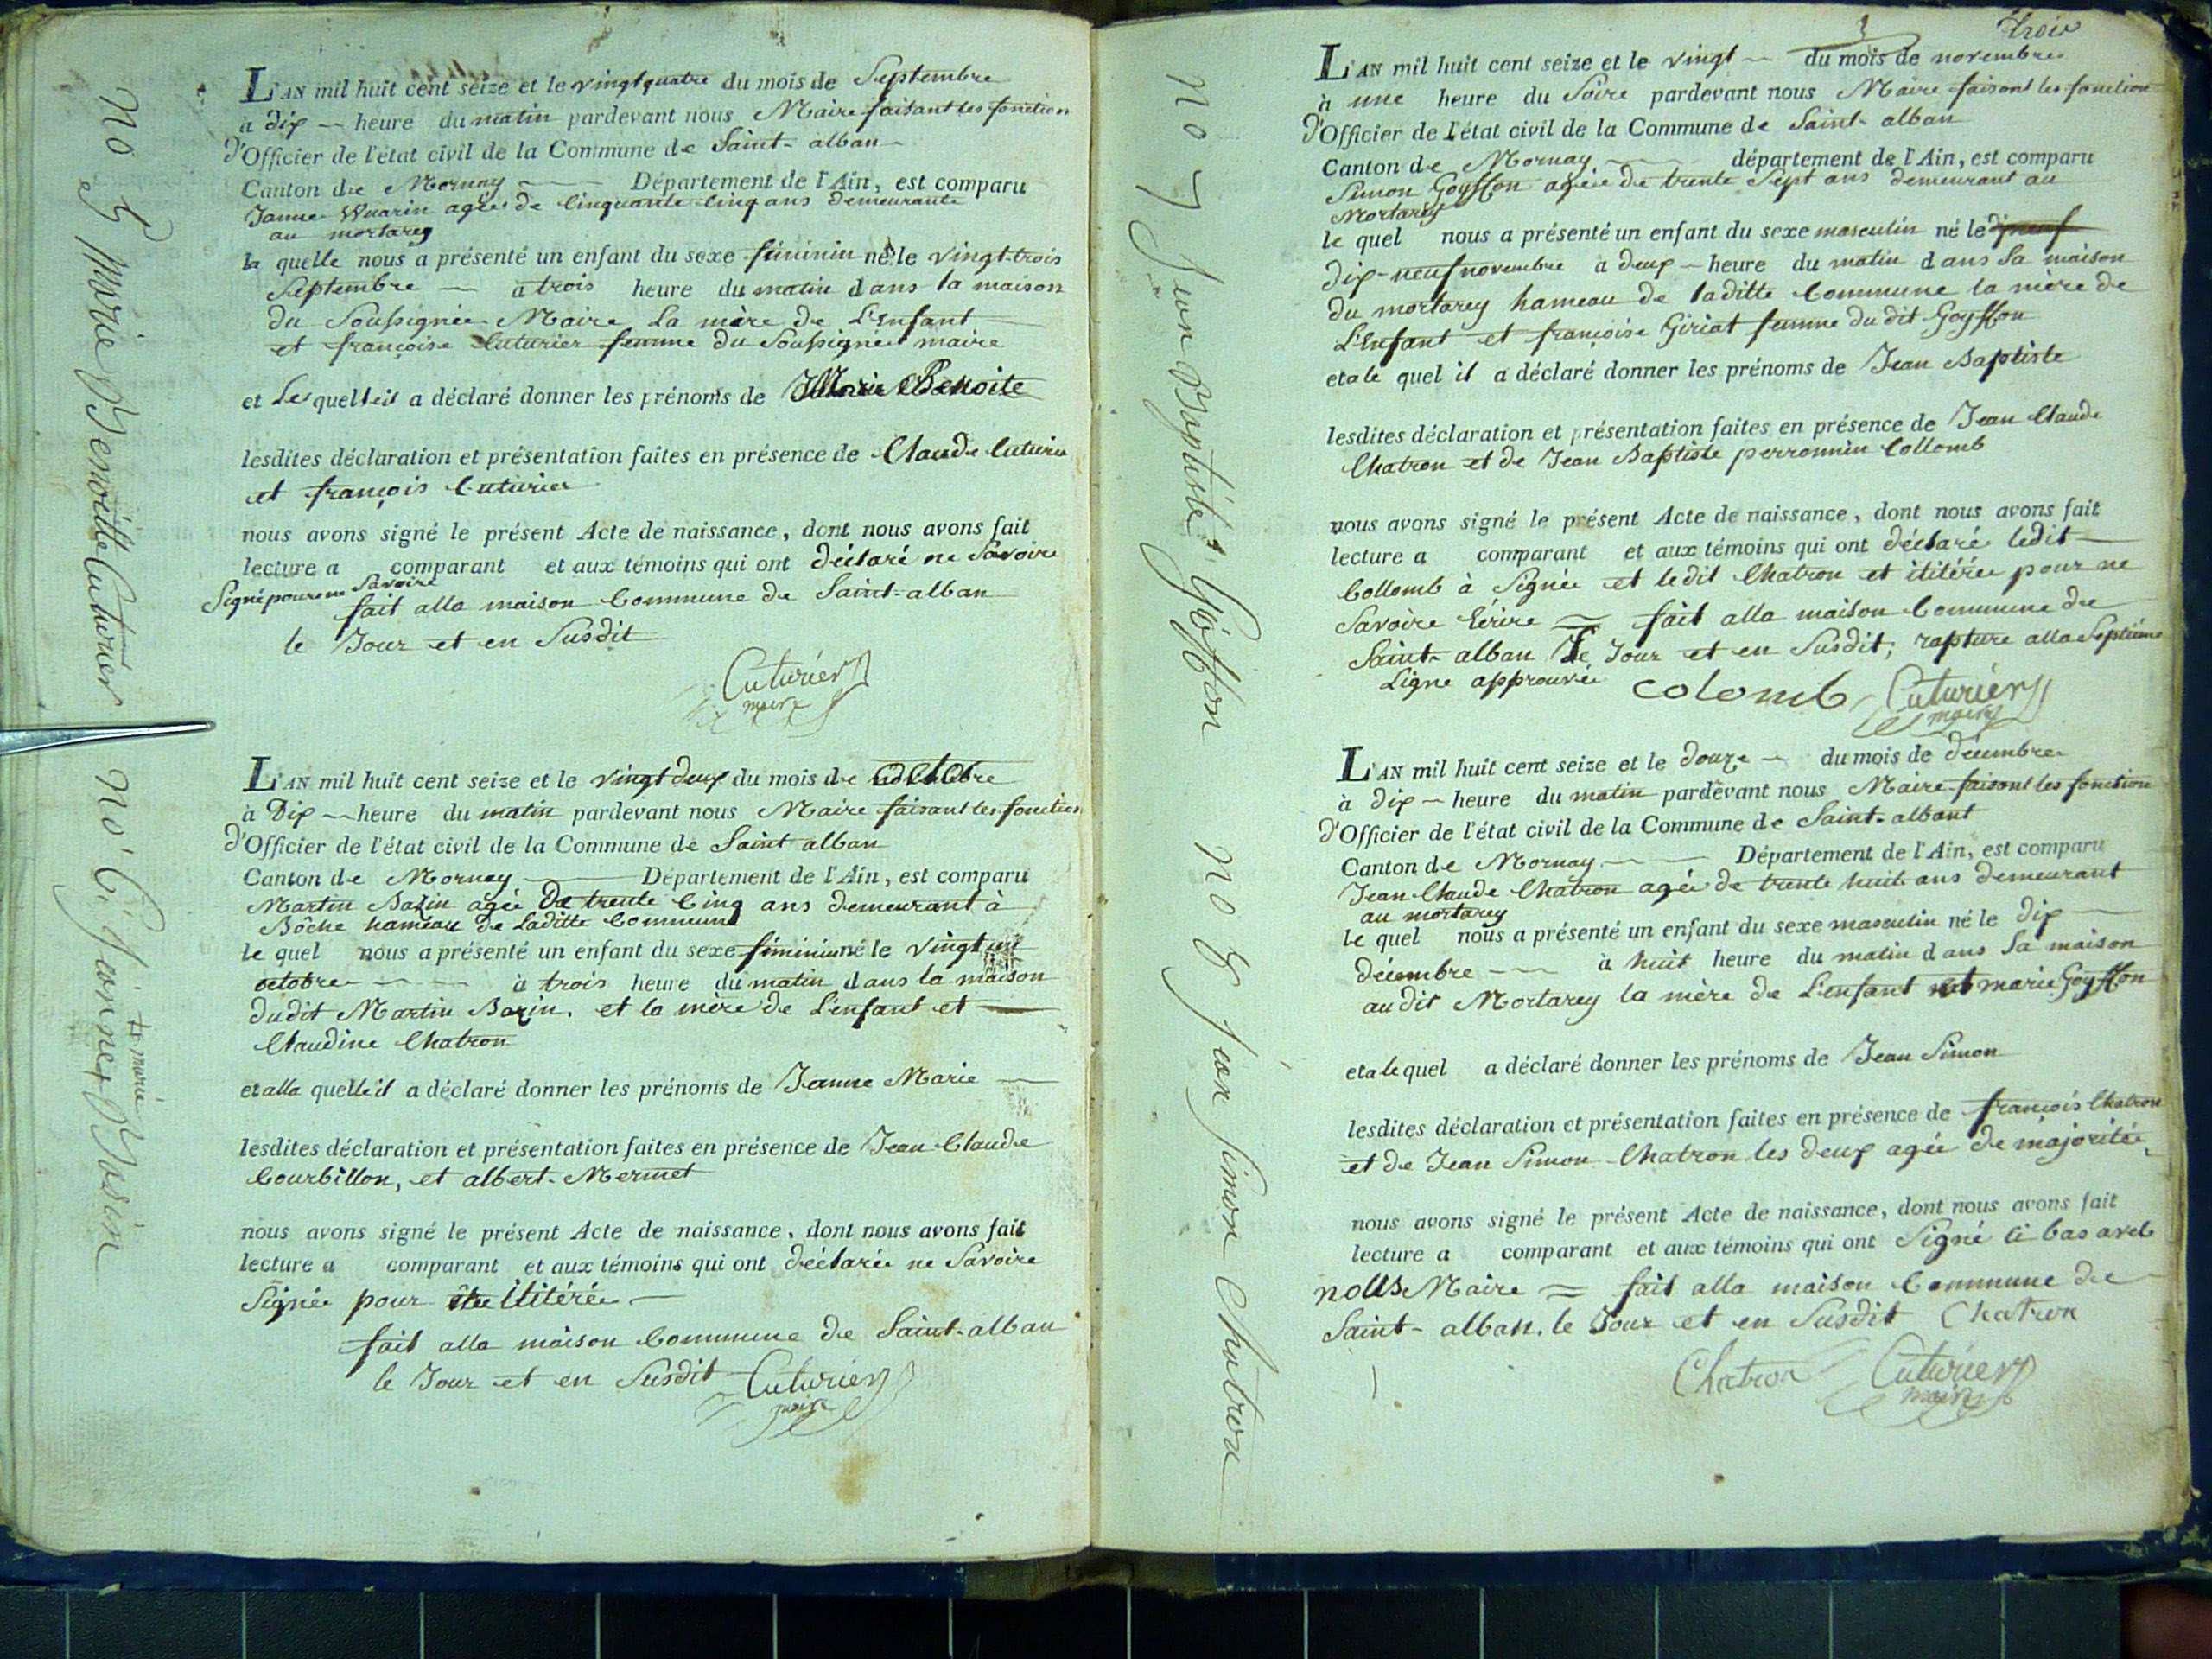 no 5 Marie Benoitte Cuturier
L'AN mil huit cent seize et le vingt quatre du mois de Septembre
à dix heure du matin pardevant nous Maire faisant les fonction
d'Officier de l'état civil de la Commune de Saint-alban
Canton de Mornay Département de l'Ain, est comparu
Janne Wuarin agée de Cinquante Cinq ans demeurante
au mortarey
la quelle nous a présenté un enfant du sexe féminin né le vingt-trois
Septembre à trois heure du matin dans la maison
du Soussignée Maire La mère de L'Enfant
et françoise Cuturier femme du Soussigné maire
et Les quelleil a déclaré donner les prénoms de Marie Benoite
lesdites déclaration et présentation faites en présence de Claude Cuturier
et françois Cuturier
nous avons signé le présent Acte de naissance, dont nous avons fait
lecture a comparant et aux témoins qui ont déclaré ne Savoire
Signé pour ne Savoire
fait alla maison Commune de Saint-alban
le Jour et en Susdit
Cuturier
maire
no 6 Janne Marie Basin
L'AN mil huit cent seize et le vingt deux du mois de octobre
à Dix heure du matin pardevant nous Maire faisant les fonction
d'Officier de l'état civil de la Commune de Saint alban
Canton de Mornay Département de l'Ain, est comparu
Martin Bazin agée De trente Cinq ans demeurant à
Bôche hameau de Laditte Commune
le quel nous a présenté un enfant du sexe féminin né le vingt un
octobre à trois heure du matin dans la maison
dudit Martin Bazin. et la mère de L'enfant et
Claudine Chatron
et alla quelleil a déclaré donner les prénoms de Janne Marie
lesdites déclaration et présentation faites en présence de Jean Claude
Courbillon, et albert Mermet
nous avons signé le présent Acte de naissance, dont nous avons fait
lecture a comparant et aux témoins qui ont déclarée ne Savoire
Signée pour être ilitérée
fait alla maison Commune de Saint-alban
le Jour et en Susdit Cuturier
maire
3 trois
no 7 Jean Baptiste Goÿffon
L'AN mil huit cent seize et le vingt du mois de novembre
à une heure du Soire pardevant nous Maire faisont les fonction
d'Officier de l'état civil de la Commune de Saint-alban
Canton de Mornay département de l'Ain, est comparu
Simon Goyffon agée de trente Sept ans demeurant au
Mortarey
le quel nous a présenté un enfant du sexe masculin né le
dix-neuf novembre à deux heure du matin dans Sa maison
du mortarey hameau de laditte Commune la mère de
L'Enfant et françoise Giriat femme dudit Goyffon
et a le quel il a déclaré donner les prénoms de Jean Baptiste
lesdites déclaration et présentation faites en présence de Jean Claude
Chatron et de Jean Baptiste perronnin Collomb
nous avons signé le présent Acte de naissance, dont nous avons fait
lecture a comparant et aux témoins qui ont déclaré ledit
Collomb à Signée et ledit Chatron et ilitérée pour ne
Savoire Ecrire = fait alla maison Commune de
Saint-alban Le Jour et en Susdit; rapture alla Septième
Ligne approuvée colomb Cuturier
maire
no 8 Jean Simon Chatron
L'AN mil huit cent seize et le douze du mois de décembre
à dix heure du matin pardevant nous Maire faisont les fonction
d'Officier de l'état civil de la Commune de Saint-albant
Canton de Mornay Département de l'Ain, est comparu
Jean-Claude Chatron agée de trente huit ans demeurant
au mortarey
le quel nous a présenté un enfant du sexe masculin né le dix
décembre à huit heure du matin dans Sa maison
au dit Mortarey la mère de L'enfant est marie Goyffon
et a le quel a déclaré donner les prénoms de Jean Simon
lesdites déclaration et présentation faites en présence de françois Chatron
et de Jean Simon Chatron les deux agée de majoritée
nous avons signé le présent Acte de naissance, dont nous avons fait
lecture a comparant et aux témoins qui ont Signé Ci bas avec
nous Maire = fait alla maison Commune de
Saint-alban. le Jour et en Susdit Chatron
Chatron Cuturier
maire